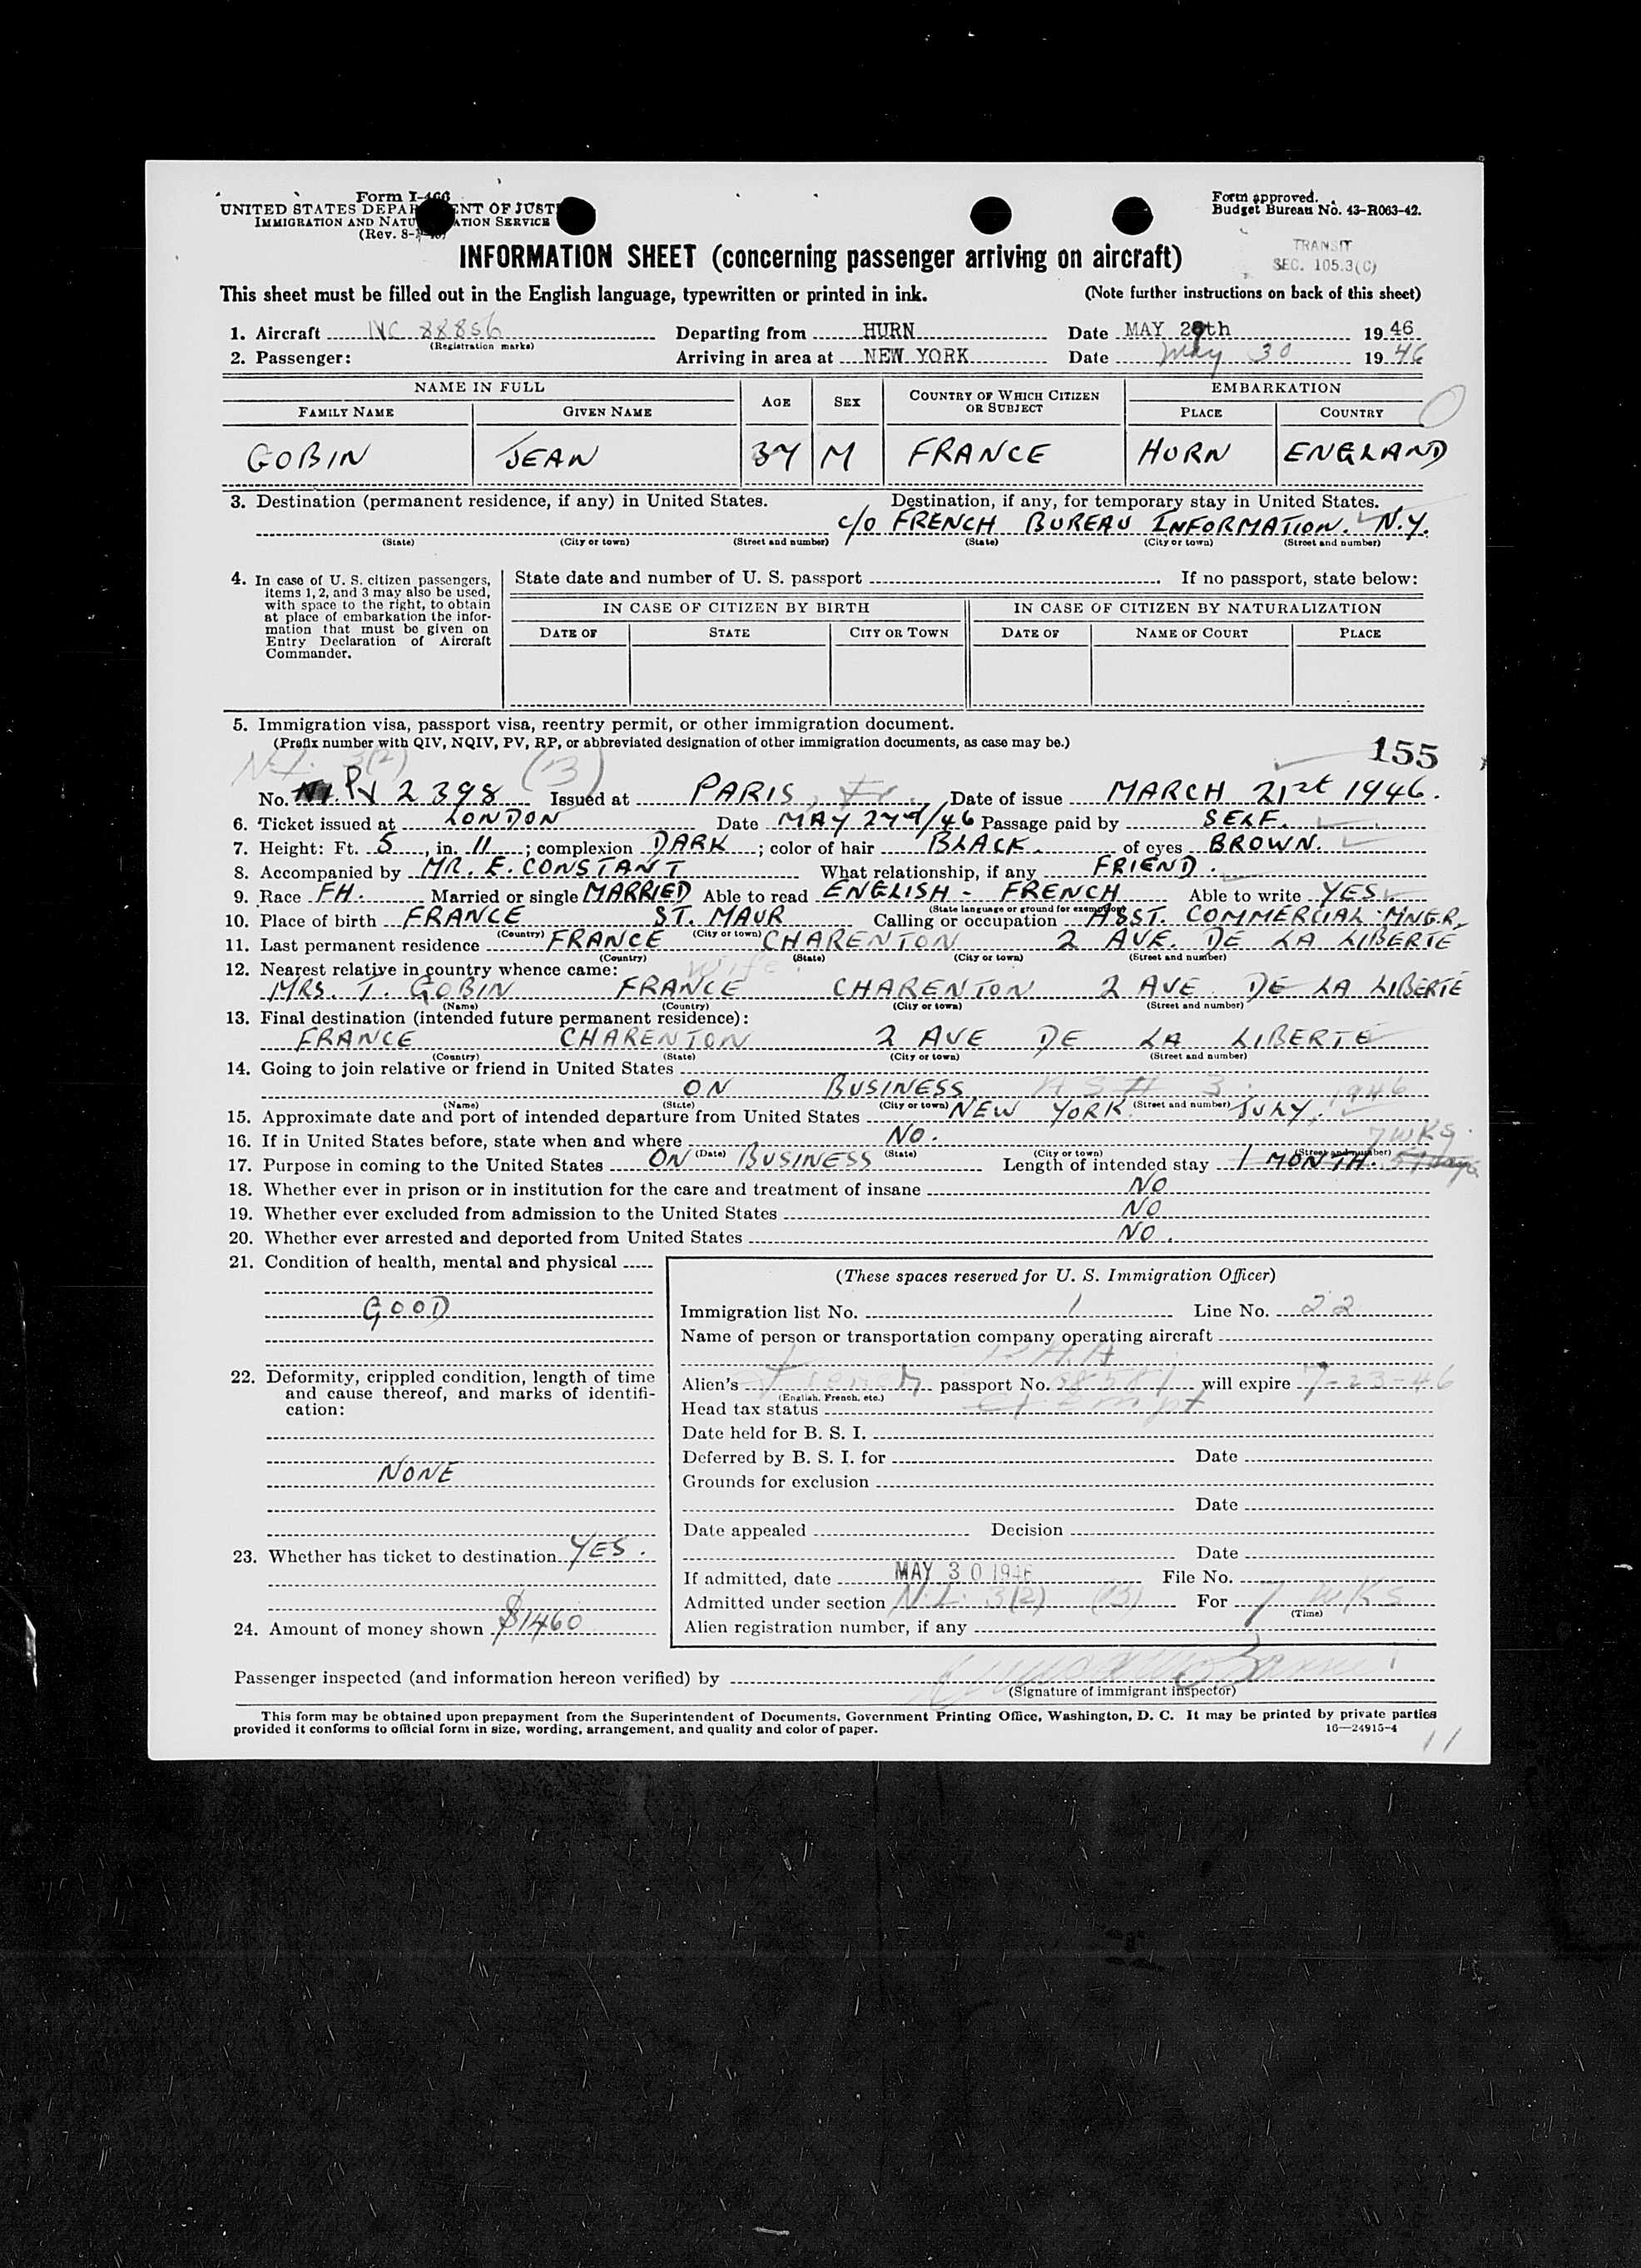 Form I-466
UNITED STATES DEPARTMENT OF JUSTICE
IMMIGRATION AND NATURALIZATION SERVICE
(Rev. 8-
Form approved.
Budget Bureau No. 43-R063-42.
TRANSIT
SEC. 105.3(C)
INFORMATION SHEET (concerning passenger arriving on aircraft)
This sheet must be filled out in the English language, typewritten or printed in ink. (Note further instructions on back of this sheet)
1. Aircraft NC 88856 Departing from HURN Date MAY 29th 1946
(Registration marks)
2. Passenger: Arriving in area at NEW YORK Date May 30 1946
NAME IN FULL AGE SEX COUNTRY OF WHICH CITIZEN OR SUBJECT EMBARKATION
FAMILY NAME GIVEN NAME PLACE COUNTRY
GOBIN JEAN 37 M FRANCE HURN ENGLAND
3. Destination (permanent residence, if any) in United States. Destination, if any, for temporary stay in United States.
c/o FRENCH BUREAU INFORMATION. N.Y.
(State) (City or town) (Street and number) (State) (City or town) (Street and number)
4. In case of U. S. citizen passengers, items 1, 2, and 3 may also be used, with space to the right, to obtain at place of embarkation the information that must be given on Entry Declaration of Aircraft Commander.
State date and number of U. S. passport . If no passport, state below:
IN CASE OF CITIZEN BY BIRTH IN CASE OF CITIZEN BY NATURALIZATION
DATE OF STATE CITY OR TOWN DATE OF NAME OF COURT PLACE
5. Immigration visa, passport visa, reentry permit, or other immigration document.
(Prefix number with QIV, NQIV, PV, RP, or abbreviated designation of other immigration documents, as case may be.)
155
3(2) (13)
No. PV 2398 Issued at PARIS, Fr. Date of issue MARCH 21st 1946.
6. Ticket issued at LONDON Date MAY 27th/46 Passage paid by SELF.
7. Height: Ft. 5, in. 11; complexion DARK; color of hair BLACK. of eyes BROWN.
8. Accompanied by MR. E. CONSTANT What relationship, if any FRIEND.
9. Race FH. Married or single MARRIED Able to read ENGLISH - FRENCH Able to write YES
(State language or ground for exemption)
10. Place of birth FRANCE ST. MAUR Calling or occupation ASST. COMMERCIAL MNGR.
(Country) (City or town)
11. Last permanent residence FRANCE CHARENTON 2 AVE. DE LA LIBERTÉ
(Country) (State) (City or town) (Street and number)
12. Nearest relative in country whence came: Wife.
MRS. T. GOBIN FRANCE CHARENTON 2 AVE DE LA LIBERTÉ
(Name) (Country) (City or town) (Street and number)
13. Final destination (intended future permanent residence):
FRANCE CHARENTON 2 AVE DE LA LIBERTÉ
(Country) (State) (City or town) (Street and number)
14. Going to join relative or friend in United States
ON BUSINESS
(Name) (State) (City or town) (Street and number)
15. Approximate date and port of intended departure from United States NEW YORK JULY, 1946
16. If in United States before, state when and where NO.
(Date) (State) (City or town) (Street and number)
7 wks.
17. Purpose in coming to the United States ON BUSINESS Length of intended stay 1 MONTH.
18. Whether ever in prison or in institution for the care and treatment of insane NO
19. Whether ever excluded from admission to the United States NO
20. Whether ever arrested and deported from United States NO.
21. Condition of health, mental and physical
GOOD
22. Deformity, crippled condition, length of time and cause thereof, and marks of identification:
NONE
23. Whether has ticket to destination YES.
24. Amount of money shown $1460
(These spaces reserved for U. S. Immigration Officer)
Immigration list No. 1 Line No. 22
Name of person or transportation company operating aircraft
Alien's French passport No. will expire 7-23-46
(English, French, etc.)
Head tax status exempt
Date held for B. S. I.
Deferred by B. S. I. for Date
Grounds for exclusion
Date
Date appealed Decision
Date
If admitted, date MAY 30 1946 File No.
Admitted under section 3(2) (13) For 7 wks
(Time)
Alien registration number, if any
Passenger inspected (and information hereon verified) by
(Signature of immigrant inspector)
This form may be obtained upon prepayment from the Superintendent of Documents, Government Printing Office, Washington, D. C. It may be printed by private parties
provided it conforms to official form in size, wording, arrangement, and quality and color of paper. 16—24915-4
11